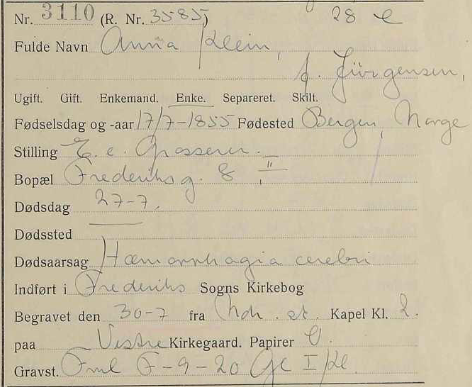 Nr. 3110 (R. Nr. 3585) 28 e
Fulde Navn Anna Klein,
f. Jürgensen,
Ugift. Gift. Enkemand. Enke. Separeret. Skilt.
Fødselsdag og -aar 17/7-1855 Fødested Bergen, Norge
Stilling E. e. Grosserer.
Bopæl Frederiksg. 8 II
Dødsdag 27-7.
Dødssted
Dødsaarsag Hæmorrhagia cerebri
Indført i Frederiks Sogns Kirkebog
Begravet den 30-7 fra Ndr. st. Kapel Kl. 2.
paa Vestre Kirkegaard. Papirer
Gravst. F-9-20 I Kl.